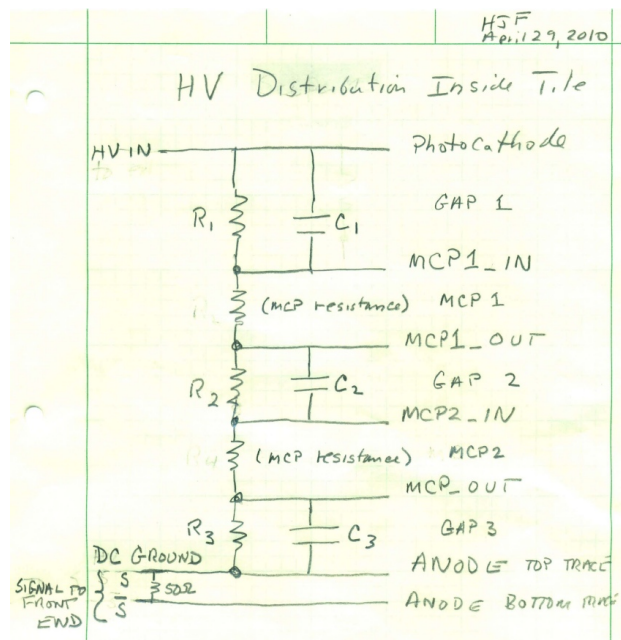 HJF
April 29, 2010
HV Distribution Inside Tile
HV IN
Photocathode
GAP 1
R1
C1
MCP1_IN
(MCP resistance)
MCP 1
MCP1_OUT
R2
C2
GAP 2
MCP2_IN
(MCP resistance)
MCP2
MCP_OUT
R3
C3
GAP 3
DC GROUND
ANODE TOP TRACE
SIGNAL TO
FRONT
END
S
50Ω
S̅
ANODE BOTTOM TRACE